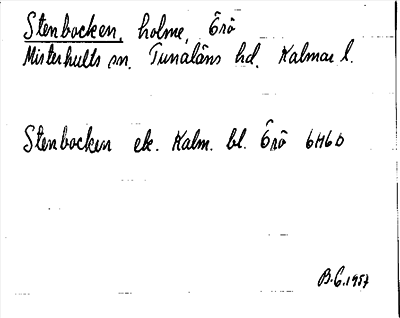 Stenbocken, holme, Örö
Misterhults sn. Tunaläns hd. Kalmar l.
Stenbocken ek. Kalm. bl. Örö 6H6b
B.G. 1957